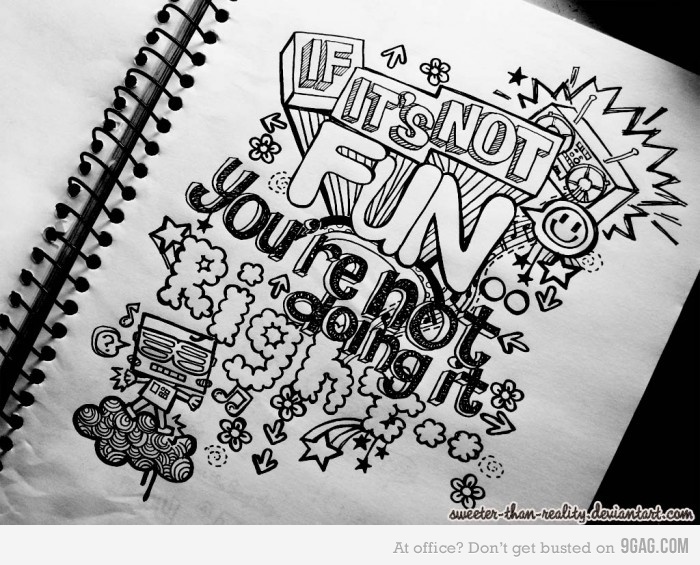 IF
IT'S NOT
FUN
you're not
doing it
Right...
?
sweeter-than-reality.deviantart.com
At office? Don't get busted on 9GAG.COM